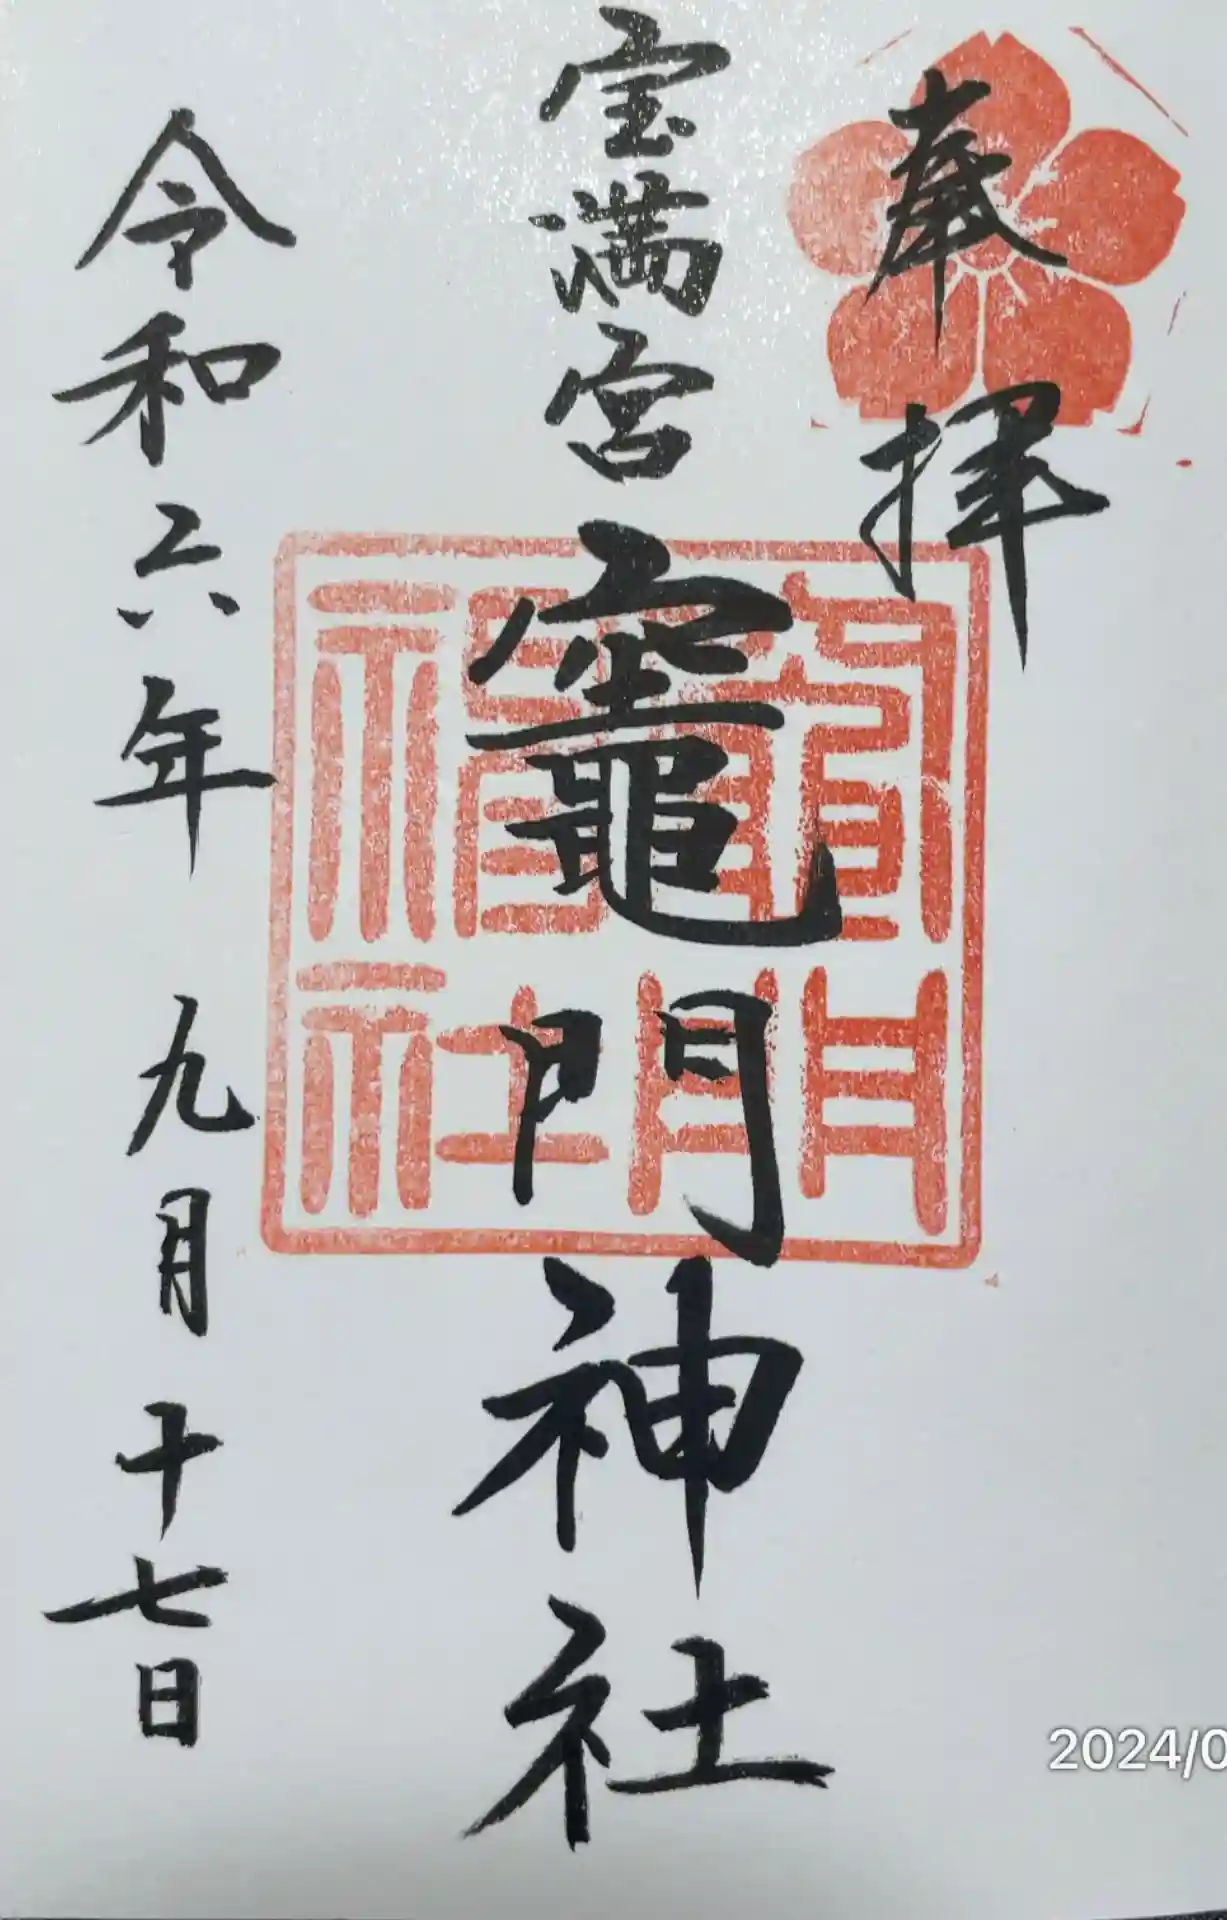 奉拝
宝満宮 竈門神社
竈門神社
令和六年 九月十七日
2024/0